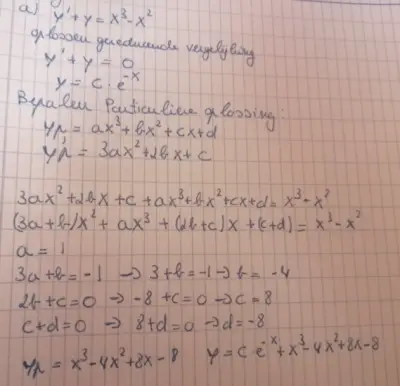 a) y' + y = x³ - x²
oplossen gereduceerde vergelijking
y' + y = 0
y = c · e^-x
Bepalen Particuliere oplossing:
yp = ax³ + bx² + cx + d
y'p = 3ax² + 2bx + c
3ax² + 2bx + c + ax³ + bx² + cx + d = x³ - x²
(3a + b)x² + ax³ + (2b + c)x + (c + d) = x³ - x²
a = 1
3a + b = -1 → 3 + b = -1 → b = -4
2b + c = 0 → -8 + c = 0 → c = 8
c + d = 0 → 8 + d = 0 → d = -8
yp = x³ - 4x² + 8x - 8 y = c e^-x + x³ - 4x² + 8x - 8